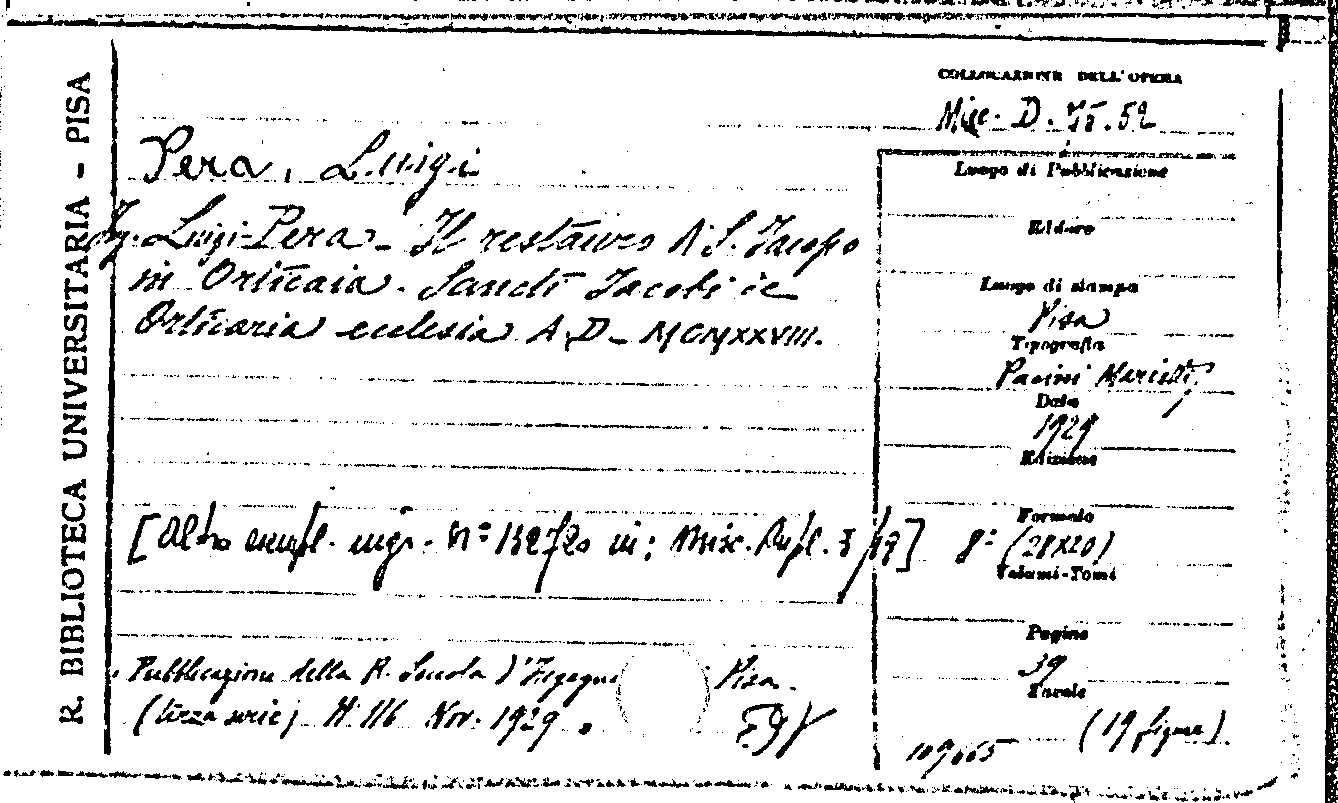 R. BIBLIOTECA UNIVERSITARIA - PISA
COLLOCAZIONE DELL'OPERA
Misc. D. 75.52
Pera, Luigi
Ing. Luigi Pera - Il restauro di S. Jacopo
in Orticaia. Sancti Jacobi ic
Orticaria ecclesia A.D - MCMXXVIII.
[Altro esempl. ingr. N° in: Misc. 5/19]
Pubblicazioni della R. Scuola d'Ingegne Pisa.
(terza serie) N. 116 Nov. 1929.
Luogo di Pubblicazione
Editore
Luogo di stampa
Pisa
Tipografia
Pacini Mariotti
Data
1929
Edizione
Formato
8° (28X20)
Volumi-Tomi
Pagine
39
Tavole
(19 figure).
109665